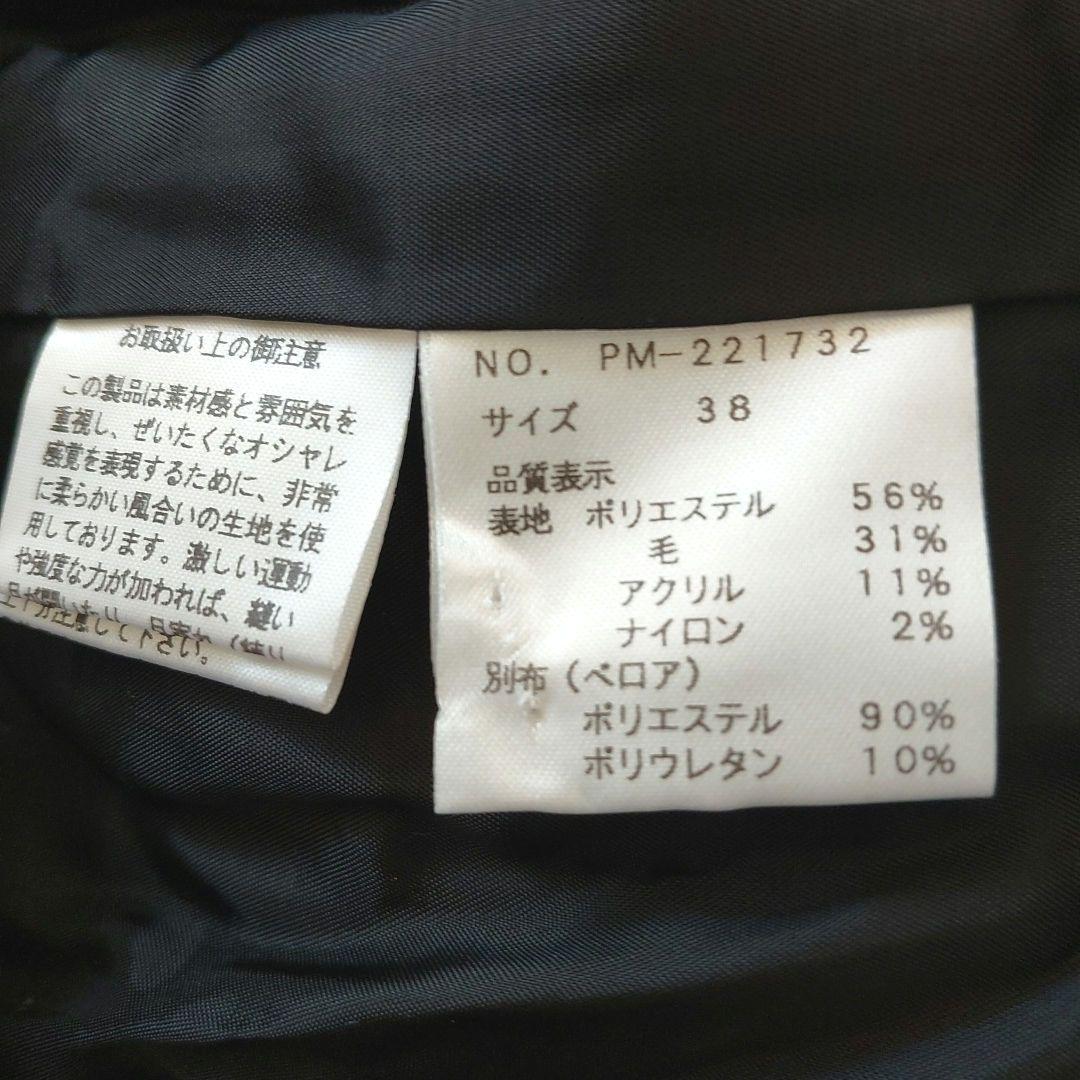 お取扱い上の御注意
この製品は素材感と雰囲気を
重視し、ぜいたくなオシャレ
感覚を表現するために、非常
に柔らかい風合いの生地を使
用しております。激しい運動
や強度な力が加われば、縫い
分注意して下さい。
NO. PM-221732
サイズ 38
品質表示
表地 ポリエステル 56%
毛 31%
アクリル 11%
ナイロン 2%
別布(ベロア)
ポリエステル 90%
ポリウレタン 10%